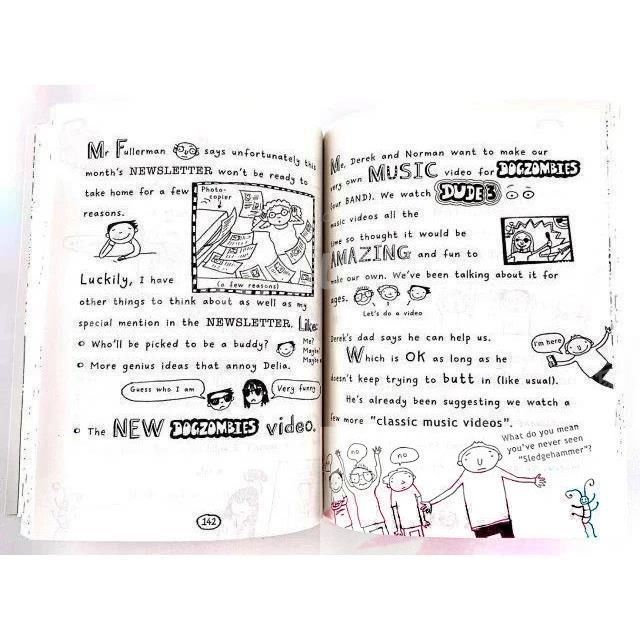 Mr Fullerman says unfortunately this
month's NEWSLETTER won't be ready to
take home for a few
reasons.
Photo-
copier
(a few reasons)
Luckily, I have
other things to think about as well as my
special mention in the NEWSLETTER. Like:
Who'll be picked to be a buddy?
Me?
Maybe?
Maybe
More genius ideas that annoy Delia.
Guess who I am
Very funny
The NEW DOGZOMBIES video.
142
Me, Derek and Norman want to make our
very own MUSIC video for DOGZOMBIES
(our BAND). We watch DUDE3
music videos all the
time so thought it would be
AMAZING and fun to
make our own. We've been talking about it for
ages.
Let's do a video
Derek's dad says he can help us.
I'm here
Which is OK as long as he
doesn't keep trying to butt in (like usual).
He's already been suggesting we watch a
few more "classic music videos".
What do you mean
you've never seen
"Sledgehammer"?
no
no